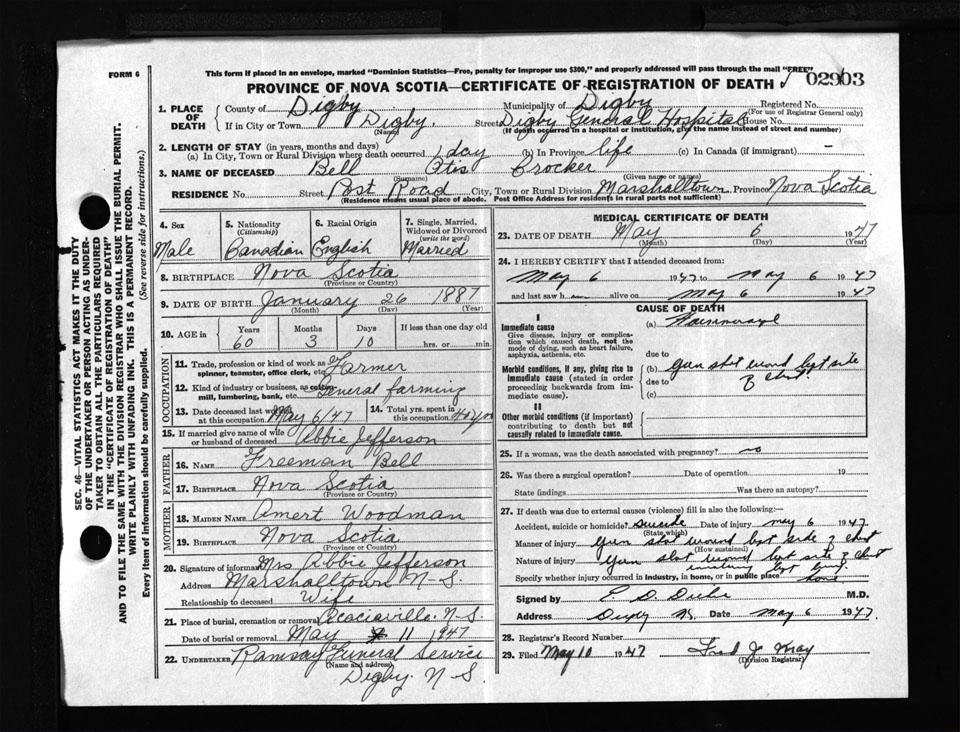 FORM 6
This form if placed in an envelope, marked "Dominion Statistics—Free, penalty for improper use $300," and properly addressed will pass through the mail "FREE"
PROVINCE OF NOVA SCOTIA—CERTIFICATE OF REGISTRATION OF DEATH 02903
1. PLACE OF DEATH County of Digby Municipality of Digby Registered No. (For use of Registrar General only)
If in City or Town Digby. (Name) Street Digby General Hospital House No.
(If death occurred in a hospital or institution, give the name instead of street and number)
2. LENGTH OF STAY (in years, months and days)
(a) In City, Town or Rural Division where death occurred 1 day (b) In Province life (c) In Canada (if immigrant) —
3. NAME OF DECEASED Bell Otis Crocker
(Surname) (Given name or names)
RESIDENCE No. Street Post Road City, Town or Rural Division Marshalltown, Province Nova Scotia
(Residence means usual place of abode. Post Office Address for residents in rural parts not sufficient)
4. Sex 5. Nationality (Citizenship) 6. Racial Origin 7. Single, Married, Widowed or Divorced (write the word)
Male Canadian English Married
8. BIRTHPLACE Nova Scotia
(Province or Country)
9. DATE OF BIRTH January 26 1887
(Month) (Day) (Year)
10. AGE in Years Months Days If less than one day old
60 3 10 hrs. or min.
OCCUPATION
11. Trade, profession or kind of work as spinner, teamster, office clerk, etc. Farmer
12. Kind of industry or business, as cotton mill, lumbering, bank, etc. General farming
13. Date deceased last worked at this occupation May 6/47 14. Total yrs. spent in this occupation 40 yrs
15. If married give name of wife or husband of deceased Abbie Jefferson
FATHER
16. NAME Freeman Bell
17. BIRTHPLACE Nova Scotia
(Province or Country)
MOTHER
18. MAIDEN NAME Amert Woodman
19. BIRTHPLACE Nova Scotia
(Province or Country)
20. Signature of informant Mrs Abbie Jefferson
Address Marshalltown N-S.
Relationship to deceased Wife
21. Place of burial, cremation or removal Acaciaville. N.S.
Date of burial or removal May 11 1947
22. UNDERTAKER Ramsay Funeral Service
(Name and address)
Digby. N-S.
MEDICAL CERTIFICATE OF DEATH
23. DATE OF DEATH May 6 1947
(Month) (Day) (Year)
24. I HEREBY CERTIFY that I attended deceased from:
May 6 1947 to May 6 1947
and last saw h alive on May 6 1947
CAUSE OF DEATH
I
Immediate cause (a) Haemorrhage
Give disease, injury or complication which caused death, not the mode of dying, such as heart failure, asphyxia, asthenia, etc.
due to
Morbid conditions, if any, giving rise to immediate cause (stated in order proceeding backwards from immediate cause).
(b) gun shot wound left side
due to of chest
(c)
II
Other morbid conditions (if important) contributing to death but not causally related to immediate cause.
25. If a woman, was the death associated with pregnancy? no
26. Was there a surgical operation? Date of operation 19
State findings Was there an autopsy?
27. If death was due to external causes (violence) fill in also the following:—
Accident, suicide or homicide? suicide Date of injury May 6 1947
(State which)
Manner of injury Gun shot wound left side of chest
(How sustained)
Nature of injury Gun shot wound left side of chest
involving left lung
Specify whether injury occurred in industry, in home, or in public place home
Signed by M.D.
Address Digby N.S. Date May 6 1947
28. Registrar's Record Number
29. Filed May 10 1947 Fred J May
(Division Registrar)
SEC. 46—VITAL STATISTICS ACT MAKES IT THE DUTY
OF THE UNDERTAKER OR PERSON ACTING AS UNDER-
TAKER TO OBTAIN ALL THE PARTICULARS REQUIRED
IN THE "CERTIFICATE OF REGISTRATION OF DEATH"
AND TO FILE THE SAME WITH THE DIVISION REGISTRAR WHO SHALL ISSUE THE BURIAL PERMIT.
WRITE PLAINLY WITH UNFADING INK. THIS IS A PERMANENT RECORD.
Every item of information should be carefully supplied. (See reverse side for instructions.)